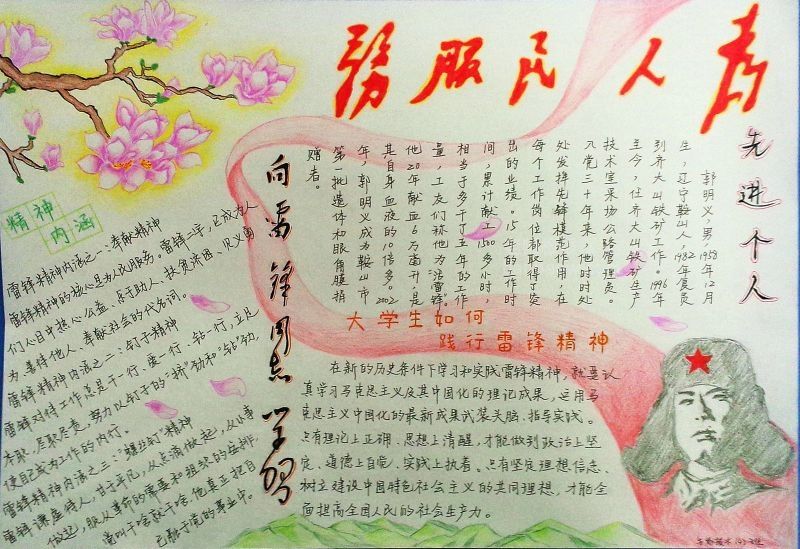 为人民服務
先进个人
郭明义,男,1958年12月
生,辽宁鞍山人,1982年复员
到齐大山铁矿工作。1996年
至今,任齐大山铁矿生产
技术室采场公路管理员。
入党三十年来,他时时处
处发挥先锋模范作用,在
每个工作岗位都取得了突
出的业绩。15年的工作时
间,累计献工1500多小时,
相当于多干了五年的工作
量,工友们称他为“活雷锋”。
他20年献血6万毫升,是
其自身血液的10倍多。2002
年,郭明义成为鞍山市
第一批遗体和眼角膜捐
赠者。
向雷锋同志学习
精神
内涵
雷锋精神内涵之一:奉献精神
雷锋精神的核心是为人民服务。雷锋二字,已成为人
们心目中热心公益、乐于助人、扶贫济困、见义勇
为、善待他人、奉献社会的代名词。
雷锋精神内涵之二:钉子精神
雷锋对待工作总是干一行、爱一行、钻一行,立足
本职、尽职尽责,努力以钉子的“挤”劲和“钻”劲,
使自己成为工作的内行。
雷锋精神内涵之三:“螺丝钉”精神
雷锋谦虚待人,甘于平凡,从点滴做起,从小事
做起,服从革命的需要和组织的安排,
党叫干啥就干啥,他真正把自
己融于党的事业中。
大学生如何
践行雷锋精神
在新的历史条件下学习和实践雷锋精神,就要认
真学习马克思主义及其中国化的理论成果,运用马
克思主义中国化的最新成果武装头脑、指导实践。
只有理论上正确、思想上清醒,才能做到政治上坚
定、道德上自觉、实践上执着。只有坚定理想信念、
树立建设中国特色社会主义的共同理想,才能全
面提高全国人民的社会生产力。